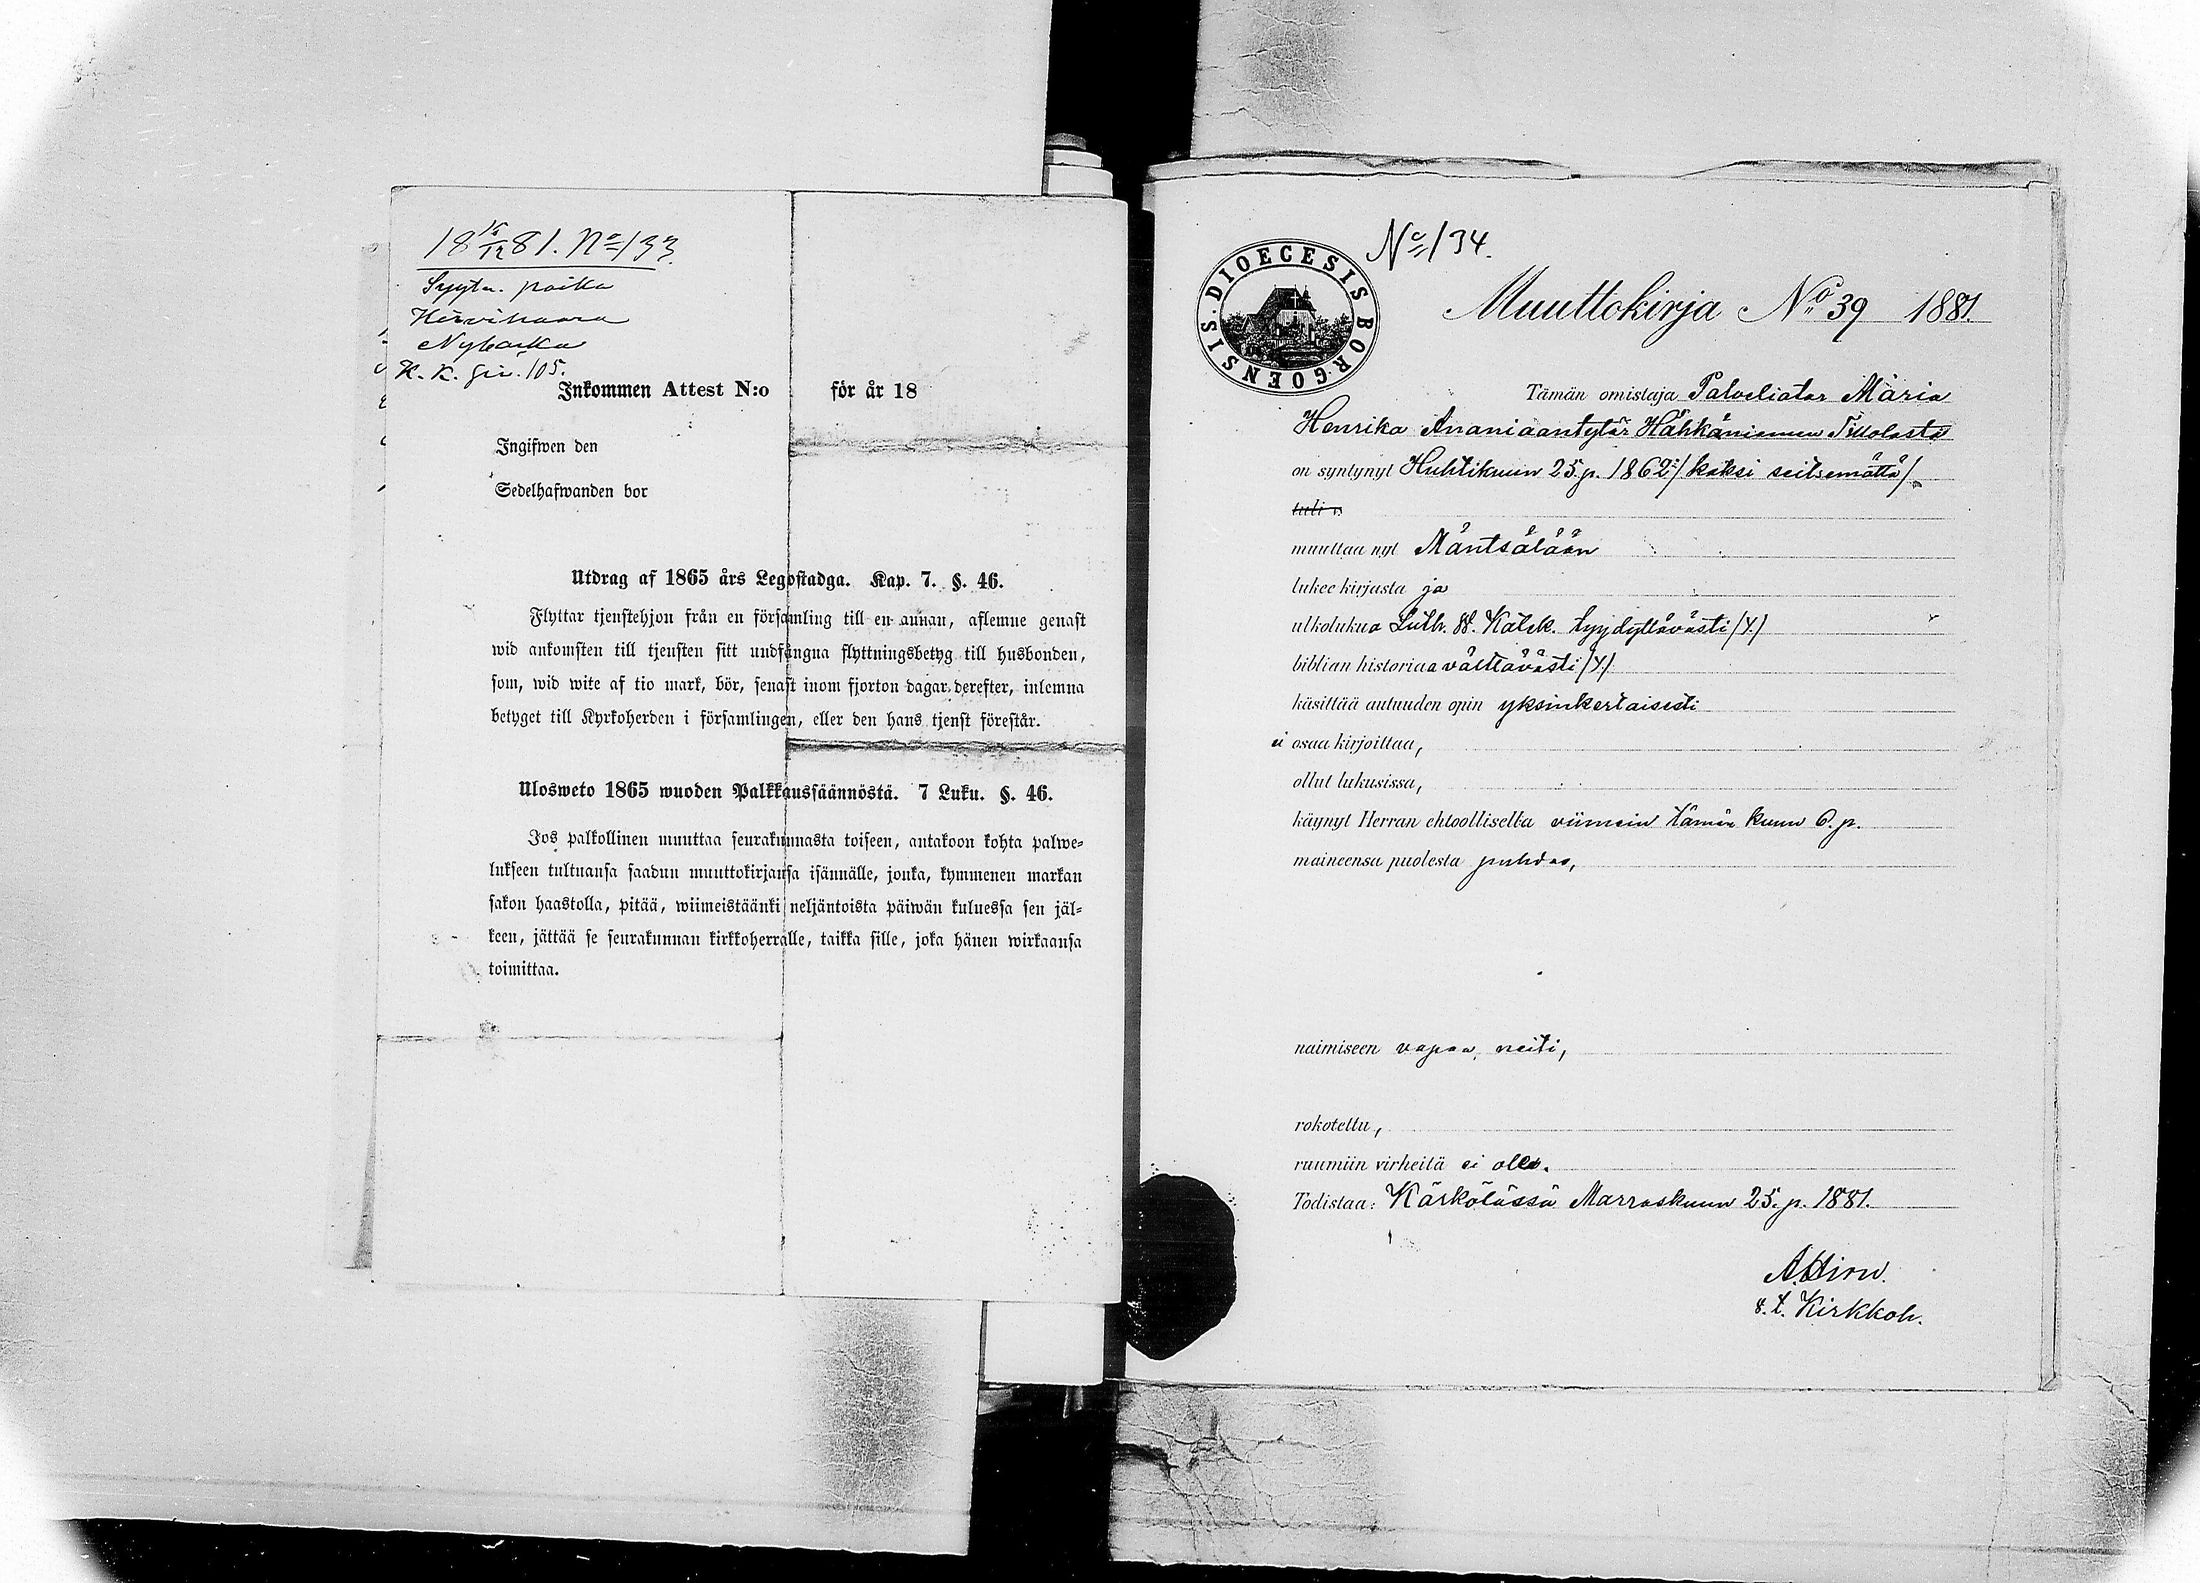 18 15/12 81. No 133.
poika
Hirvihaara
Nybacka
K. K. 105.
Inkommen Attest N:o för år 18
Ingifwen den
Sedelhafwanden bor
Utdrag af 1865 års Legostadga. Kap. 7. §. 46.
Flyttar tjenstehjon från en församling till en annan, aflemne genast
wid ankomsten till tjensten sitt undfångna flyttningsbetyg till husbonden,
som, wid wite af tio mark, bör, senast inom fjorton dagar derefter, inlemna
betyget till Kyrkoherden i församlingen, eller den hans tjenst förestår.
Ulosweto 1865 wuoden Palkkaussäännöstä. 7 Luku. §. 46.
Jos palkollinen muuttaa seurakunnasta toiseen, antakoon kohta palwe-
lukseen tultuansa saadun muuttokirjansa isännälle, jonka, kymmenen markan
sakon haastolla, pitää, wiimeistäänki neljäntoista päiwän kuluessa sen jäl-
keen, jättää se seurakunnan kirkkoherralle, taikka sille, joka hänen wirkaansa
toimittaa.
No 134.
DIOECESIS BORGOENSIS.
Muuttokirja No 39 1881.
Tämän omistaja Palveliatar Maria
Henrika Ananiaantytär Hähkäniemen Tillolasta
on syntynyt Huhtikuun 25 p. 1862 /kaksi seitsemättä/
tuli
muuttaa nyt Mäntsälään
lukee kirjasta ja
ulkolukua Luth. W. Katek. tyydyttävästi /Y./
biblian historiaa välttävästi /Y/
käsittää autuuden opin yksinkertaisesti
ei osaa kirjoittaa,
ollut lukusissa,
käynyt Herran ehtoollisella viimein tämän kuun 6. p.
maineensa puolesta puhdas,
naimiseen vapaa, neiti,
rokotettu,
ruumiin virheitä ei ole.
Todistaa: Kärkölässä Marraskuun 25. p. 1881.
v. t. Kirkkoh.